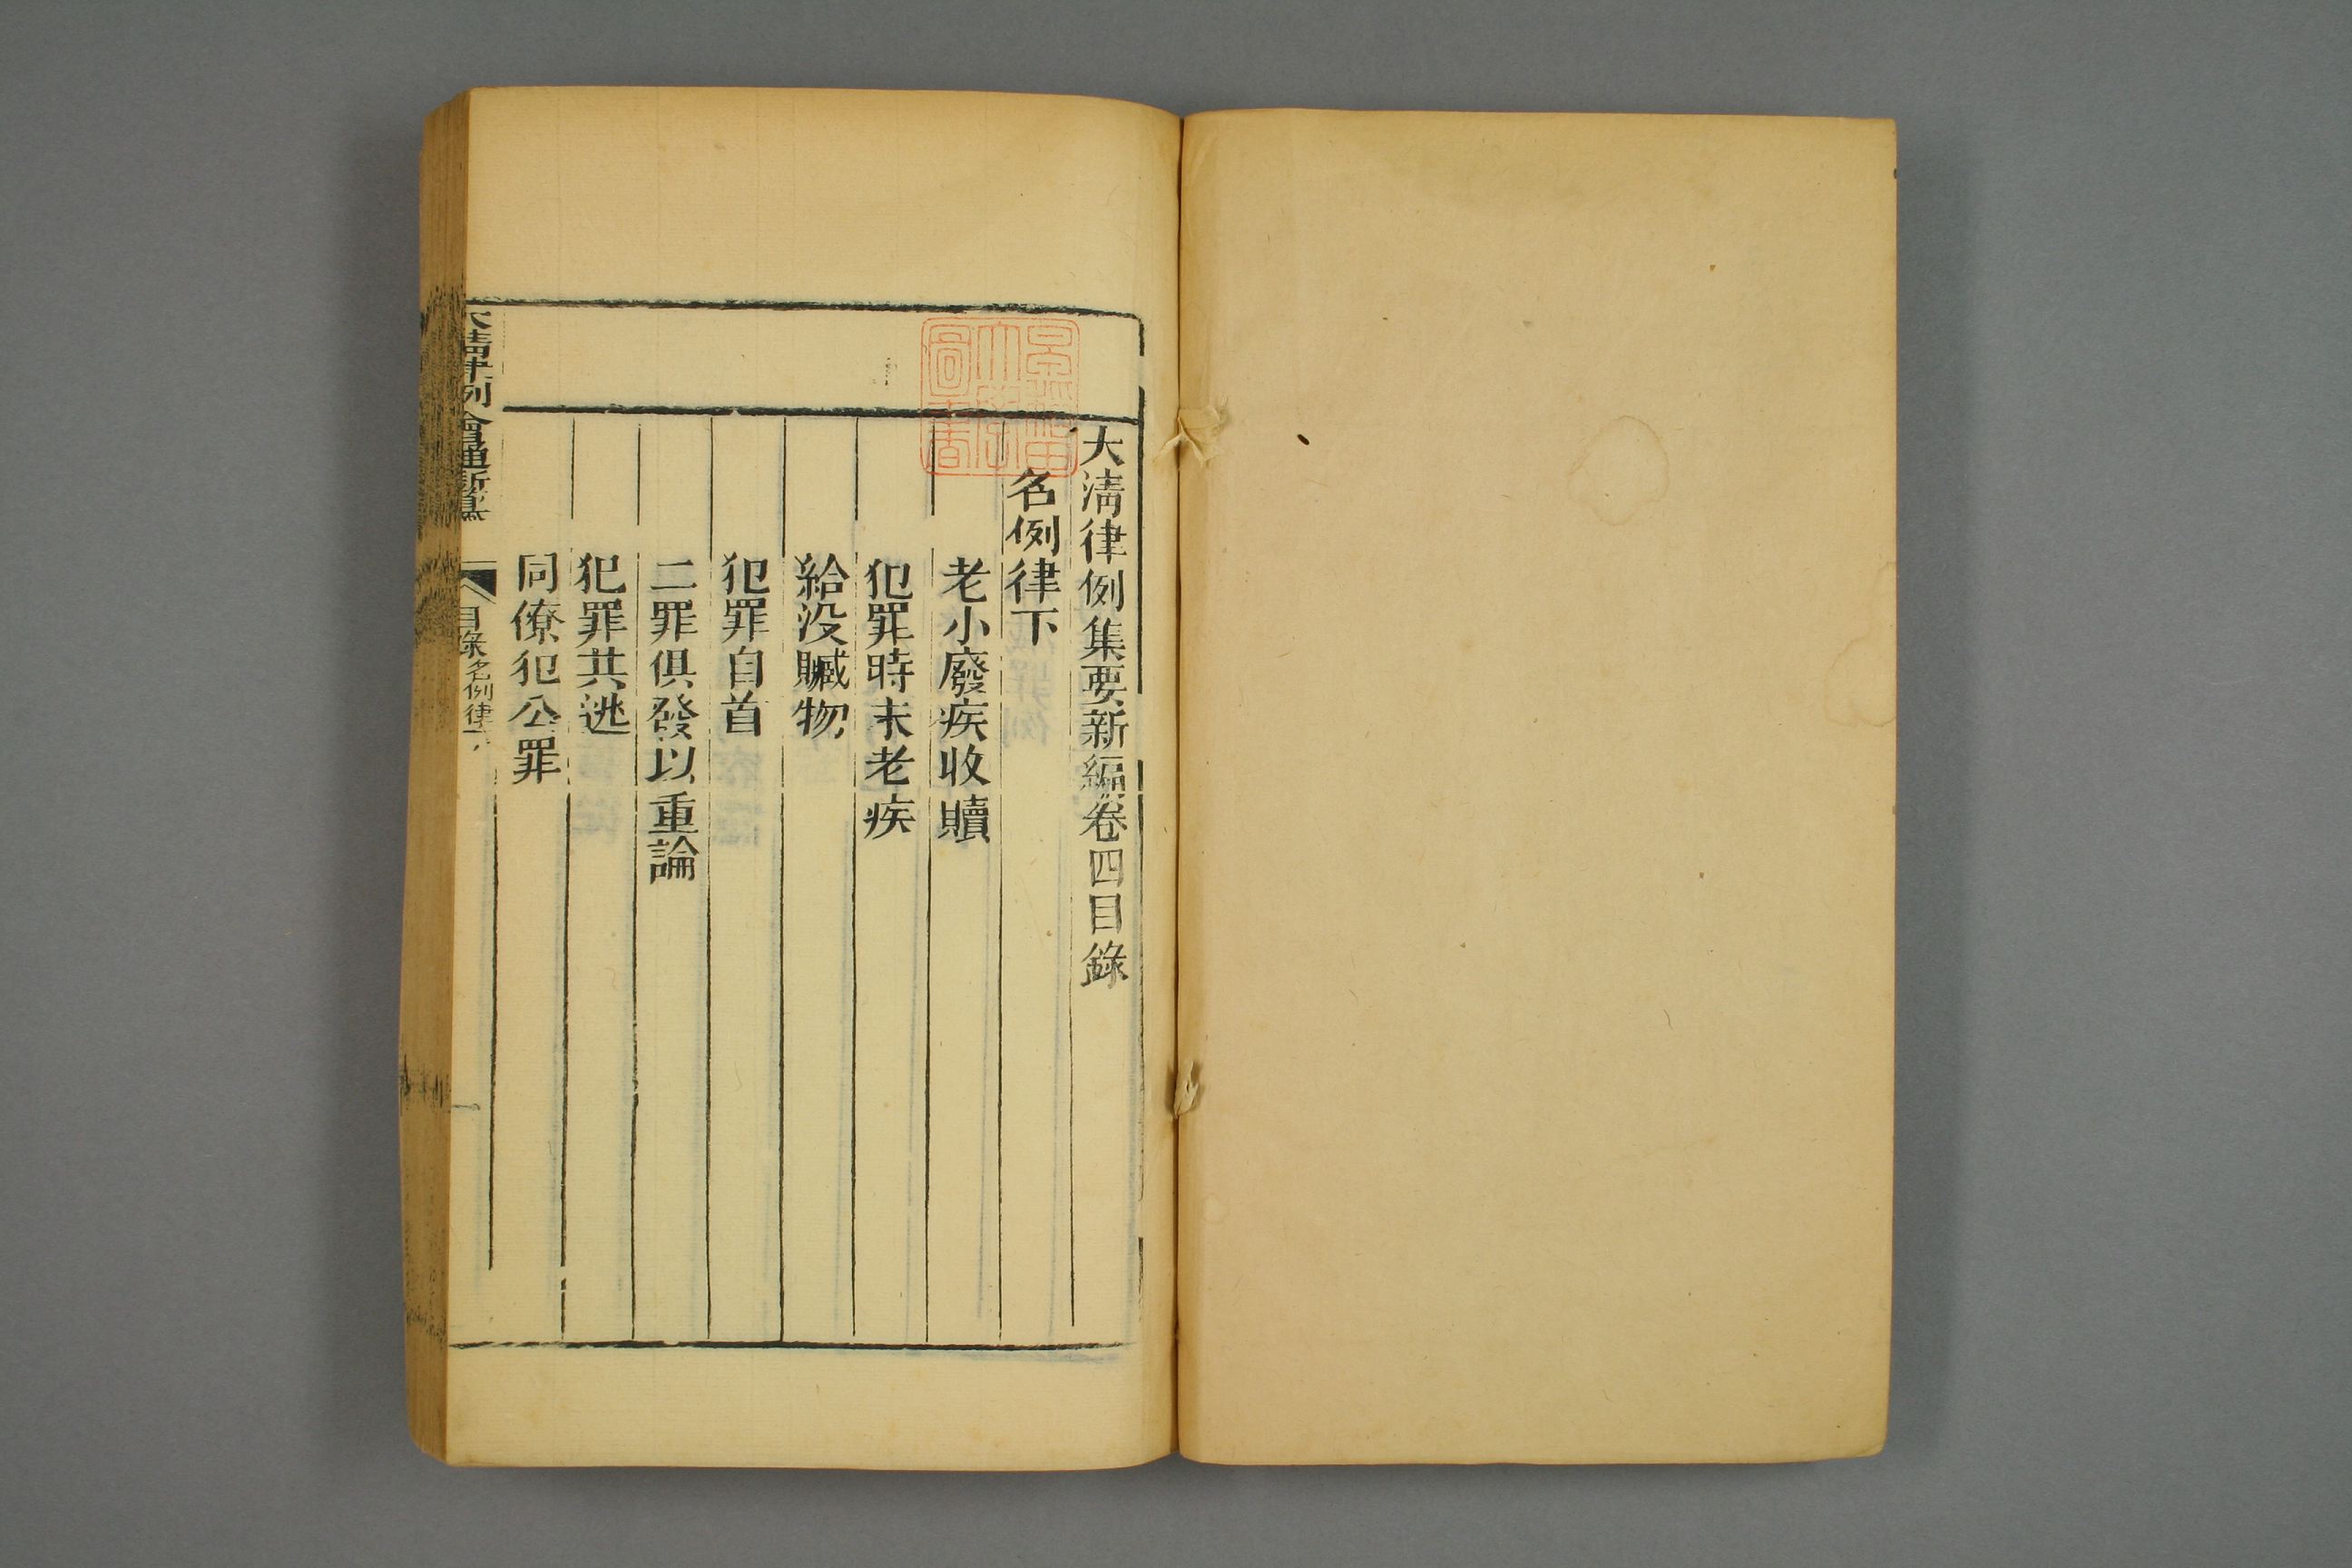 大清律例集要新編卷四目錄
名例律下
老小廢疾收贖
犯罪時未老疾
給没贓物
犯罪自首
二罪俱發以重論
犯罪共逃
同僚犯公罪
大清律例會通新纂
目錄 名例律下
一
慶應義塾大學圖書